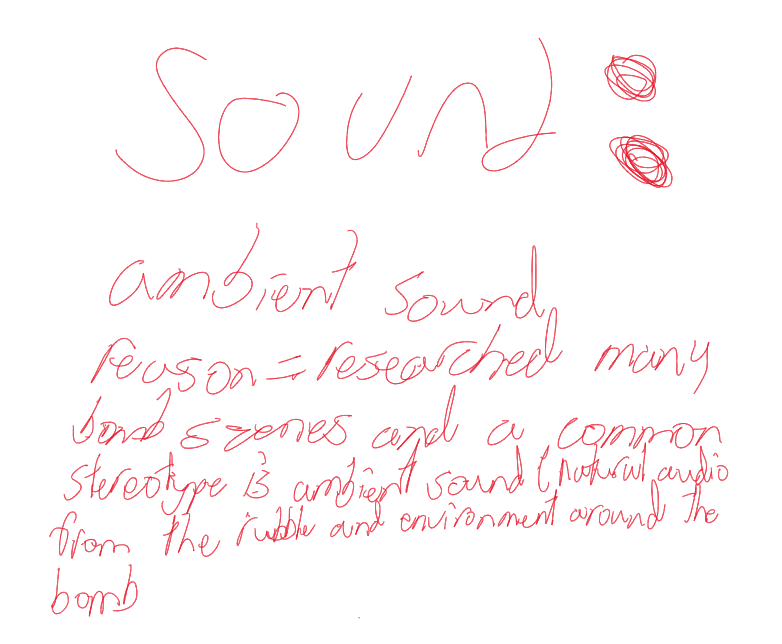 Sound:
ambient sound
reason = researched many
bomb scenes and a common
stereotype is ambient sound (natural audio
from the rubble and environment around the
bomb